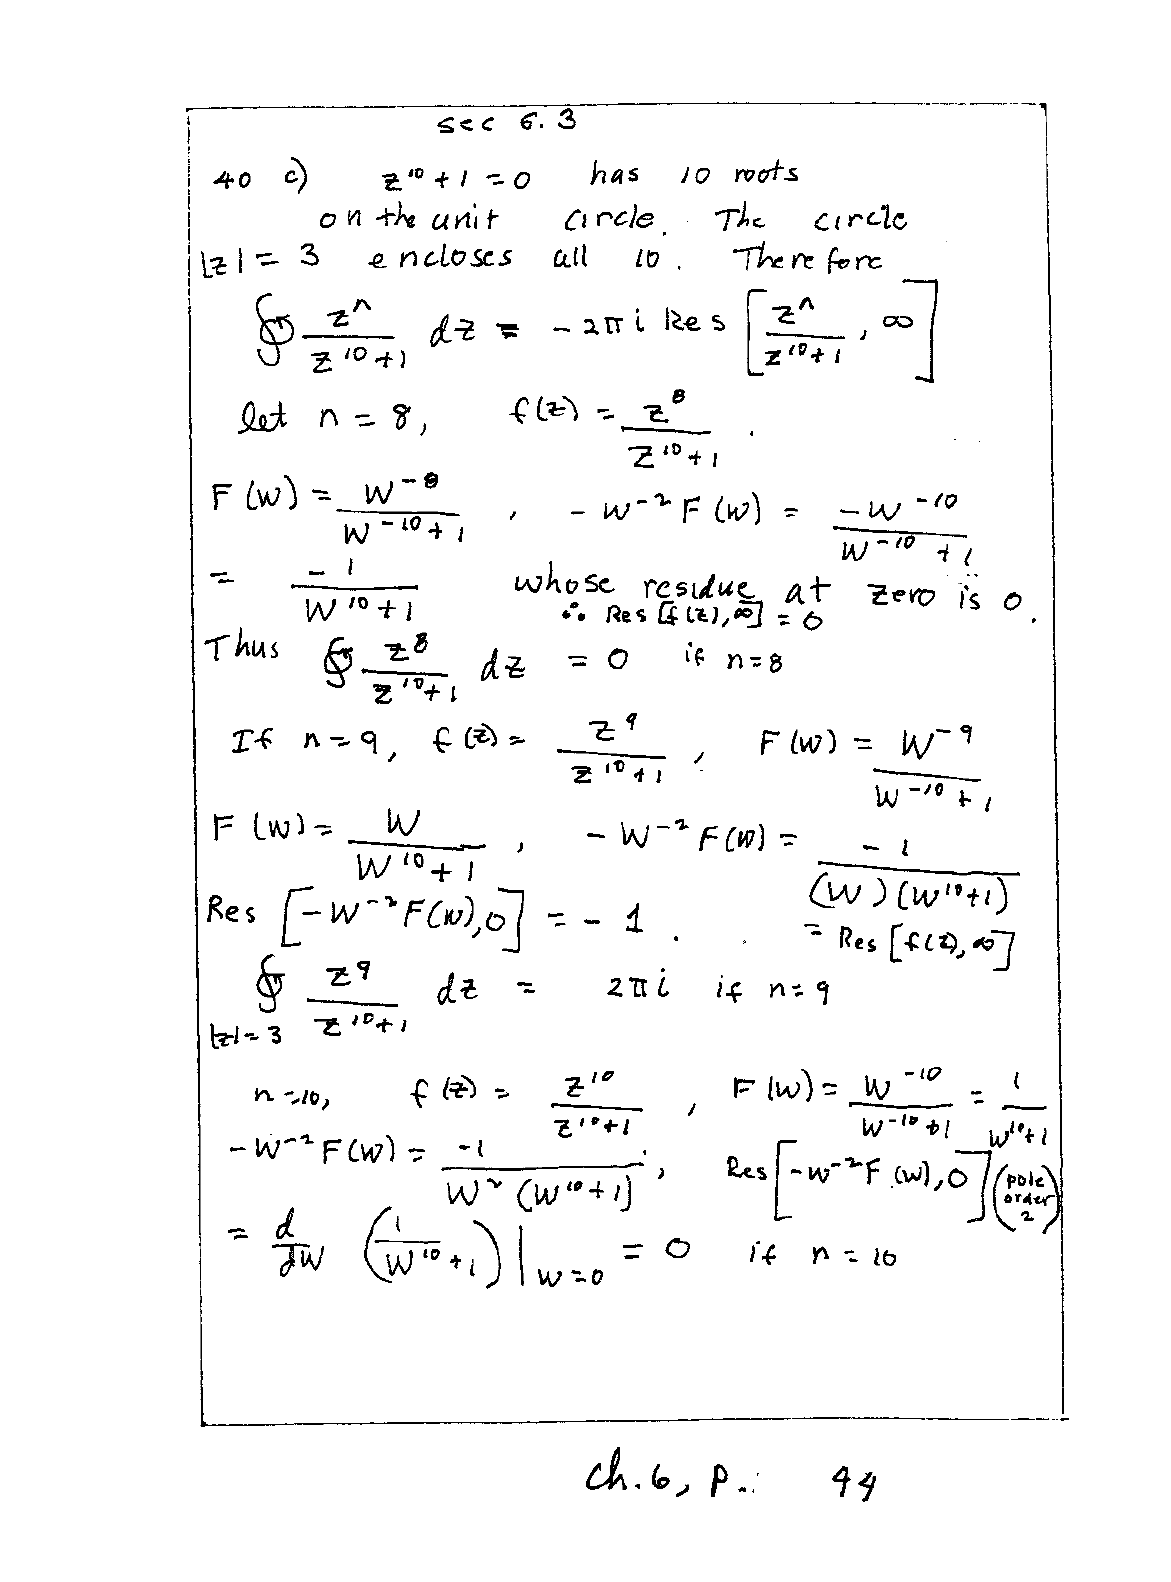 sec 6.3
40 c) z^10 + 1 = 0 has 10 roots
on the unit circle. The circle
|z| = 3 encloses all 10. Therefore
∮ z^n/(z^10+1) dz = -2πi Res [z^n/(z^10+1), ∞]
let n = 8, f(z) = z^8/(z^10+1).
F(w) = w^-8/(w^-10+1), -w^-2 F(w) = -w^-10/(w^-10+1)
= -1/(w^10+1) whose residue at zero is 0.
∴ Res [f(z), ∞] = 0
Thus ∮ z^8/(z^10+1) dz = 0 if n=8
If n=9, f(z) = z^9/(z^10+1), F(w) = w^-9/(w^-10+1)
F(w) = w/(w^10+1), -w^-2 F(w) = -1/((w)(w^10+1))
Res [-w^-2 F(w), 0] = -1. = Res [f(z), ∞]
∮ z^9/(z^10+1) dz = 2πi if n=9
|z|=3
n=10, f(z) = z^10/(z^10+1), F(w) = w^-10/(w^-10+1) = 1/(w^10+1)
-w^-2 F(w) = -1/(w^2 (w^10+1)), Res [-w^-2 F(w), 0] (pole order 2)
= d/dw (1/(w^10+1)) | w=0 = 0 if n = 10
ch. 6, p. 44